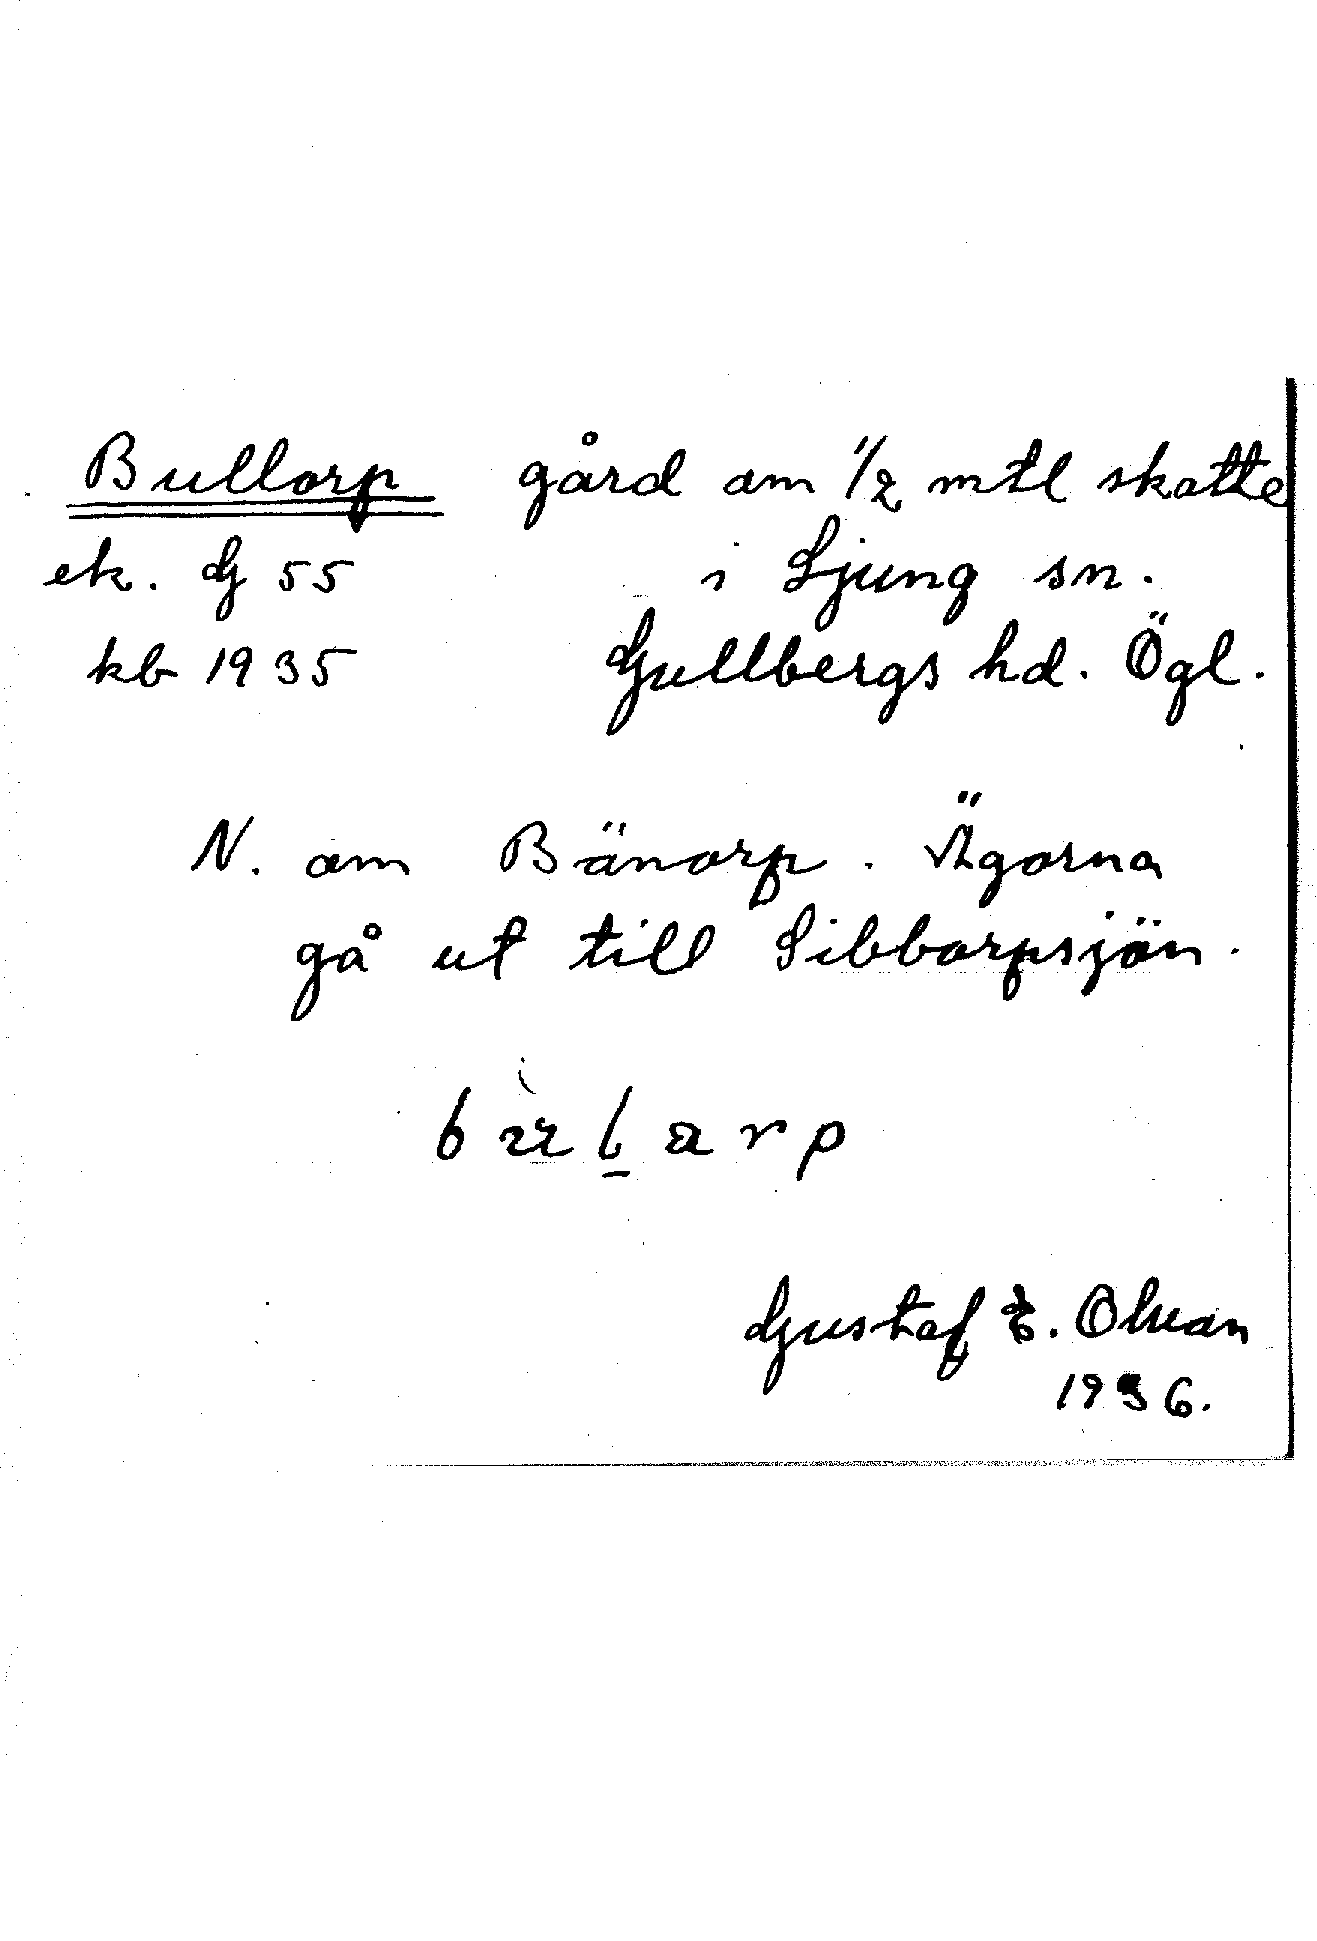 Bullorp gård om 1/2 mtl skatte
ek. G 55 i Ljung sn.
kb 1935 Gullbergs hd. Ögl.
N. om Bänorp. Ägorna
gå ut till Sibborpsjön.
Gustaf E. Olson
1936.